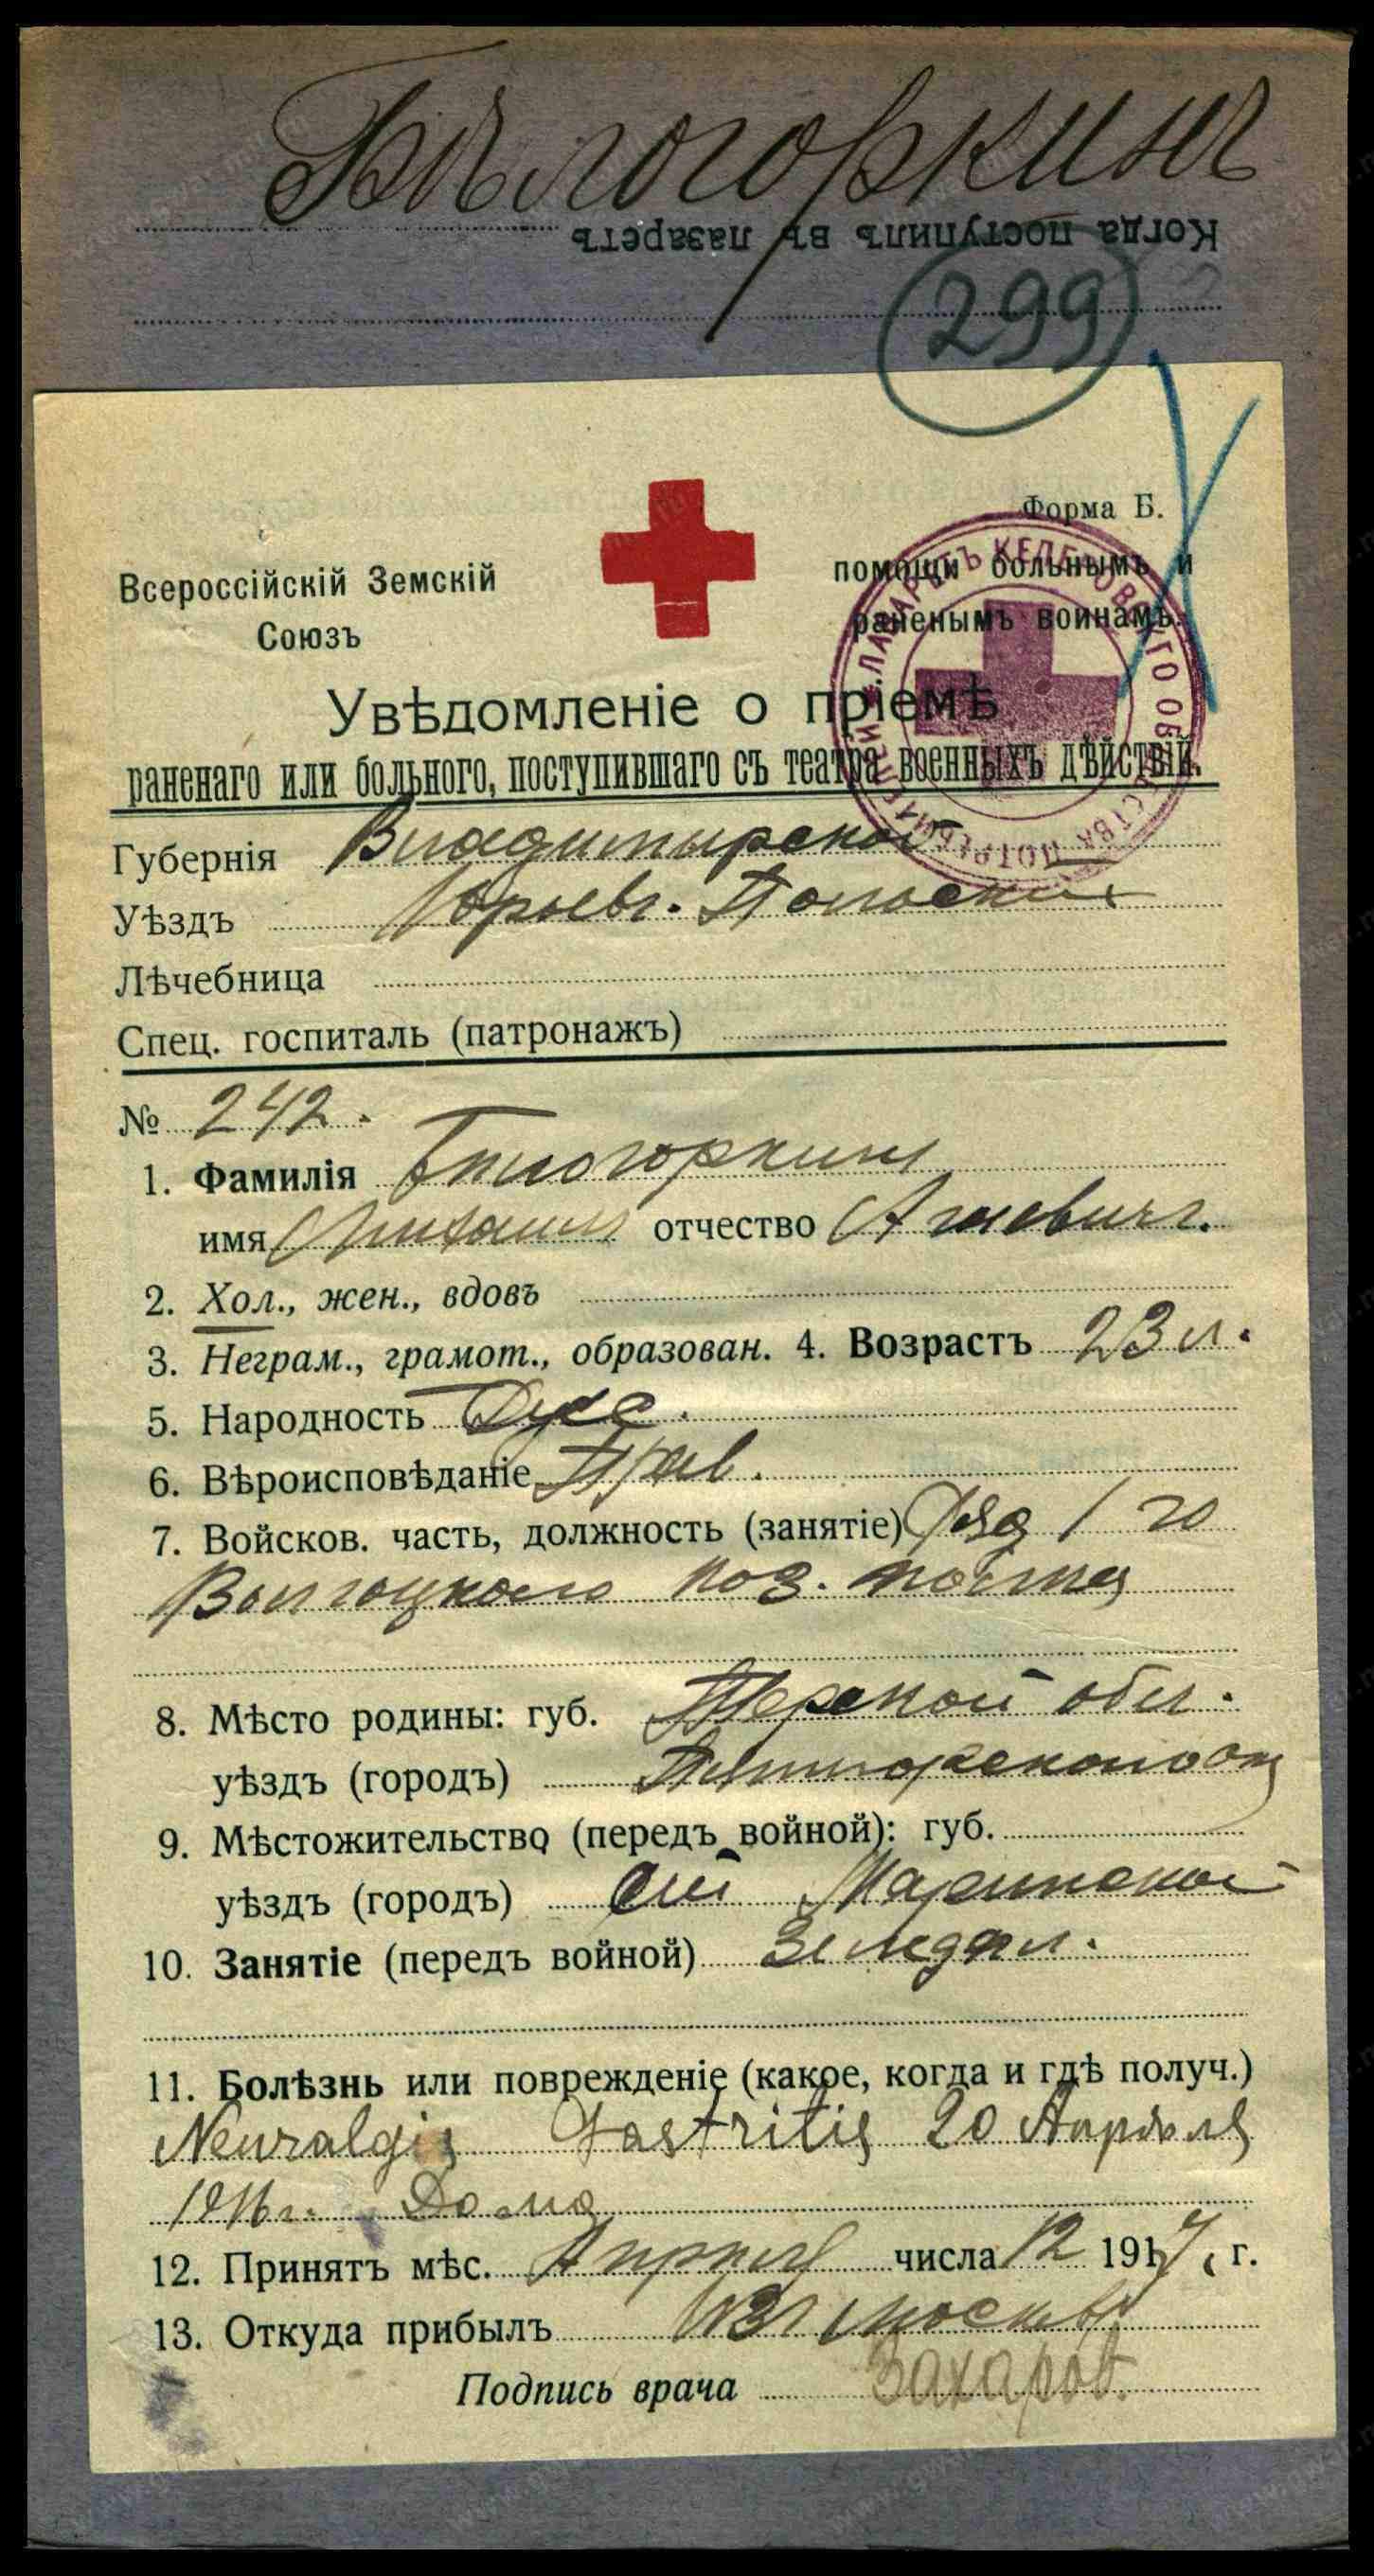 Бѣлогоркинъ
Когда поступилъ въ лазаретъ
299
Форма Б.
Всероссійскій Земскій
Союзъ
помощи больнымъ и
раненымъ воинамъ.
Увѣдомленіе о пріемѣ
раненаго или больного, поступившаго съ театра военныхъ дѣйствій.
Губернія Владимирской
Уѣздъ Юрьевъ. Польскій
Лѣчебница
Спец. госпиталь (патронажъ)
№ 242.
1. Фамилія Бѣлогоркинъ
имя Михаилъ отчество
2. Хол., жен., вдовъ
3. Неграм., грамот., образован. 4. Возрастъ 23 л.
5. Народность Русс.
6. Вѣроисповѣданіе Прав.
7. Войсков. часть, должность (занятіе) Ряд 1 го
Волгоцкаго каз. полка
8. Мѣсто родины: губ. Терской обл.
уѣздъ (городъ) Пятигорскаго от
9. Мѣстожительство (передъ войной): губ.
уѣздъ (городъ) Маринской
10. Занятіе (передъ войной) Земледѣл.
11. Болѣзнь или поврежденіе (какое, когда и гдѣ получ.)
Neuralgia Gastritis 20 Апрѣля
1916 г. Дома
12. Принятъ мѣс. Апрѣля числа 12 1917 г.
13. Откуда прибылъ изъ Москвы
Подпись врача Захаров.